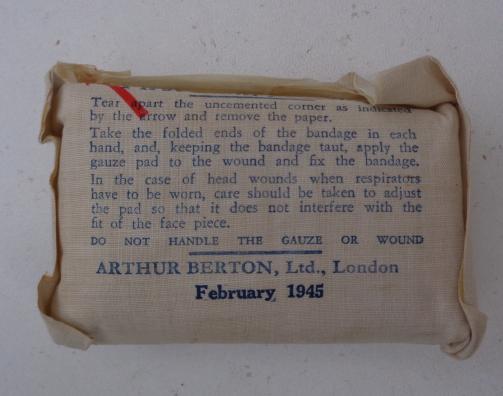 Tear apart the uncemented corner as indicated
by the arrow and remove the paper.
Take the folded ends of the bandage in each
hand, and, keeping the bandage taut, apply the
gauze pad to the wound and fix the bandage.
In the case of head wounds when respirators
have to be worn, care should be taken to adjust
the pad so that it does not interfere with the
fit of the face piece.
DO NOT HANDLE THE GAUZE OR WOUND
ARTHUR BERTON, Ltd., London
February 1945